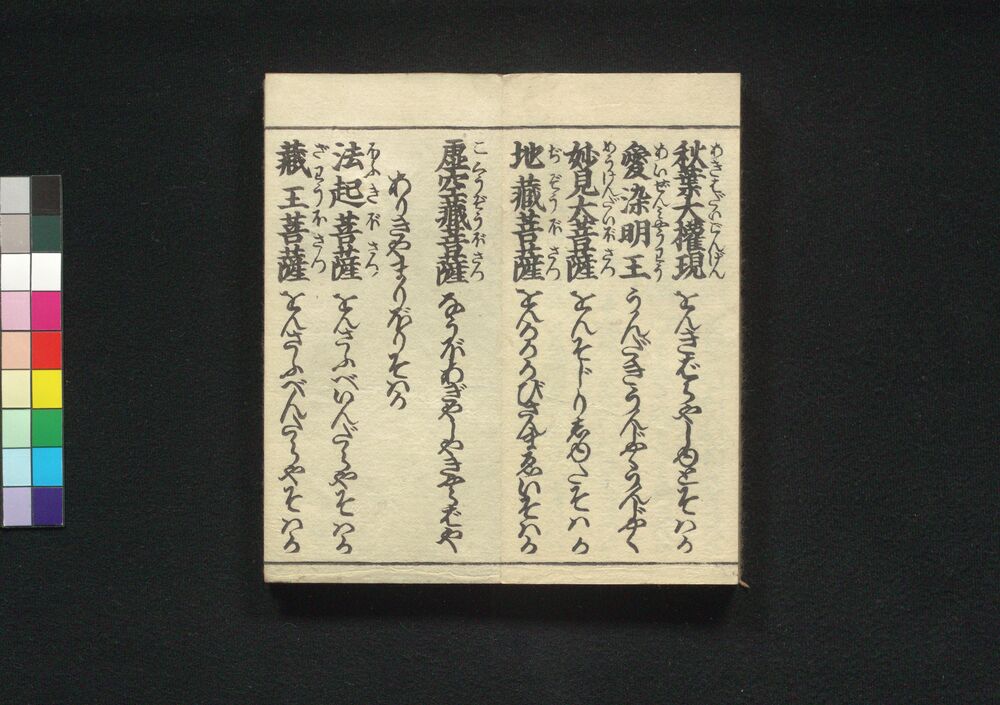 あきはだいごんげん
秋葉大權現 をんきばらやしゆとそハか
あいぜんミやうわう
愛染明王 うんだきうんじやくうんじやく
めうけんだいぼさつ
妙見大菩薩 をんそぢりしゆたそハか
ぢぞうぼさつ
地藏菩薩 をんかかかびさんまゑいそハか
こくうぞうぼさつ
虚空藏菩薩 なうぼあぎやしやきやらばや
ありきやまりぼりそハか
ほふきぼさつ
法起菩薩 をんさふべいんだらやそハか
ざわうぼさつ
藏王菩薩 をんさふべんだらやそハか